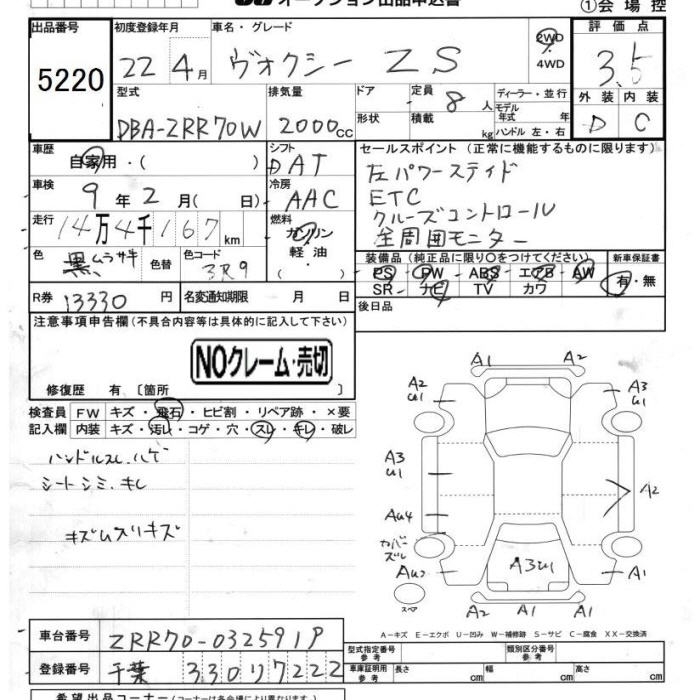 オークション出品申込書
①会場控
出品番号 5220
初度登録年月 22 4月
車名・グレード ヴォクシー ZS
2WD
4WD
評価点 3.5
外装 内装
D C
型式 DBA-ZRR70W
排気量 2000cc
ドア
形状
定員 8人
積載 kg
ディーラー・並行
モデル年式 年
ハンドル 左・右
車歴 自家用・( )
車検 9年2月( 日)
走行 14万4千167km
シフト DAT
冷房 AAC
燃料 ガソリン
軽油
( )
色 黒ムラサキ
色替
色コード 3R9
R券 13330円
名変通知期限 月 日
セールスポイント(正常に機能するものに限ります)
左パワースライド
ETC
クルーズコントロール
全周囲モニター
装備品(純正品に限り○をつけてください)
PS PW ABS エアB AW
SR ナビ TV カワ
新車保証書
有・無
後日品
注意事項申告欄(不具合内容等は具体的に記入して下さい)
NOクレーム・売切
修復歴 有〔箇所
検査員記入欄
FW キズ・飛石・ヒビ割・リペア跡・×要
内装 キズ・汚レ・コゲ・穴・スレ・キレ・破レ
ハンドルスレ.ハゲ
シートシミ.キレ
キズムスリキズ
A1 A2
A2 U1
A3 U1
A3 U1
A2
AU4
カバーズレ
AU2
A3U1
A1
スペア
A2 A1
A-キズ E-エクボ U-凹み W-補修跡 S-サビ C-腐食 XX-交換済
車台番号 ZRR70-0325919
登録番号 千葉 330 リ7222
型式指定番号 参考
類別区分番号 参考
車庫証明用 参考
長さ cm
幅 cm
高さ cm
希望出品コーナー(コーナーは各会場により異なります)